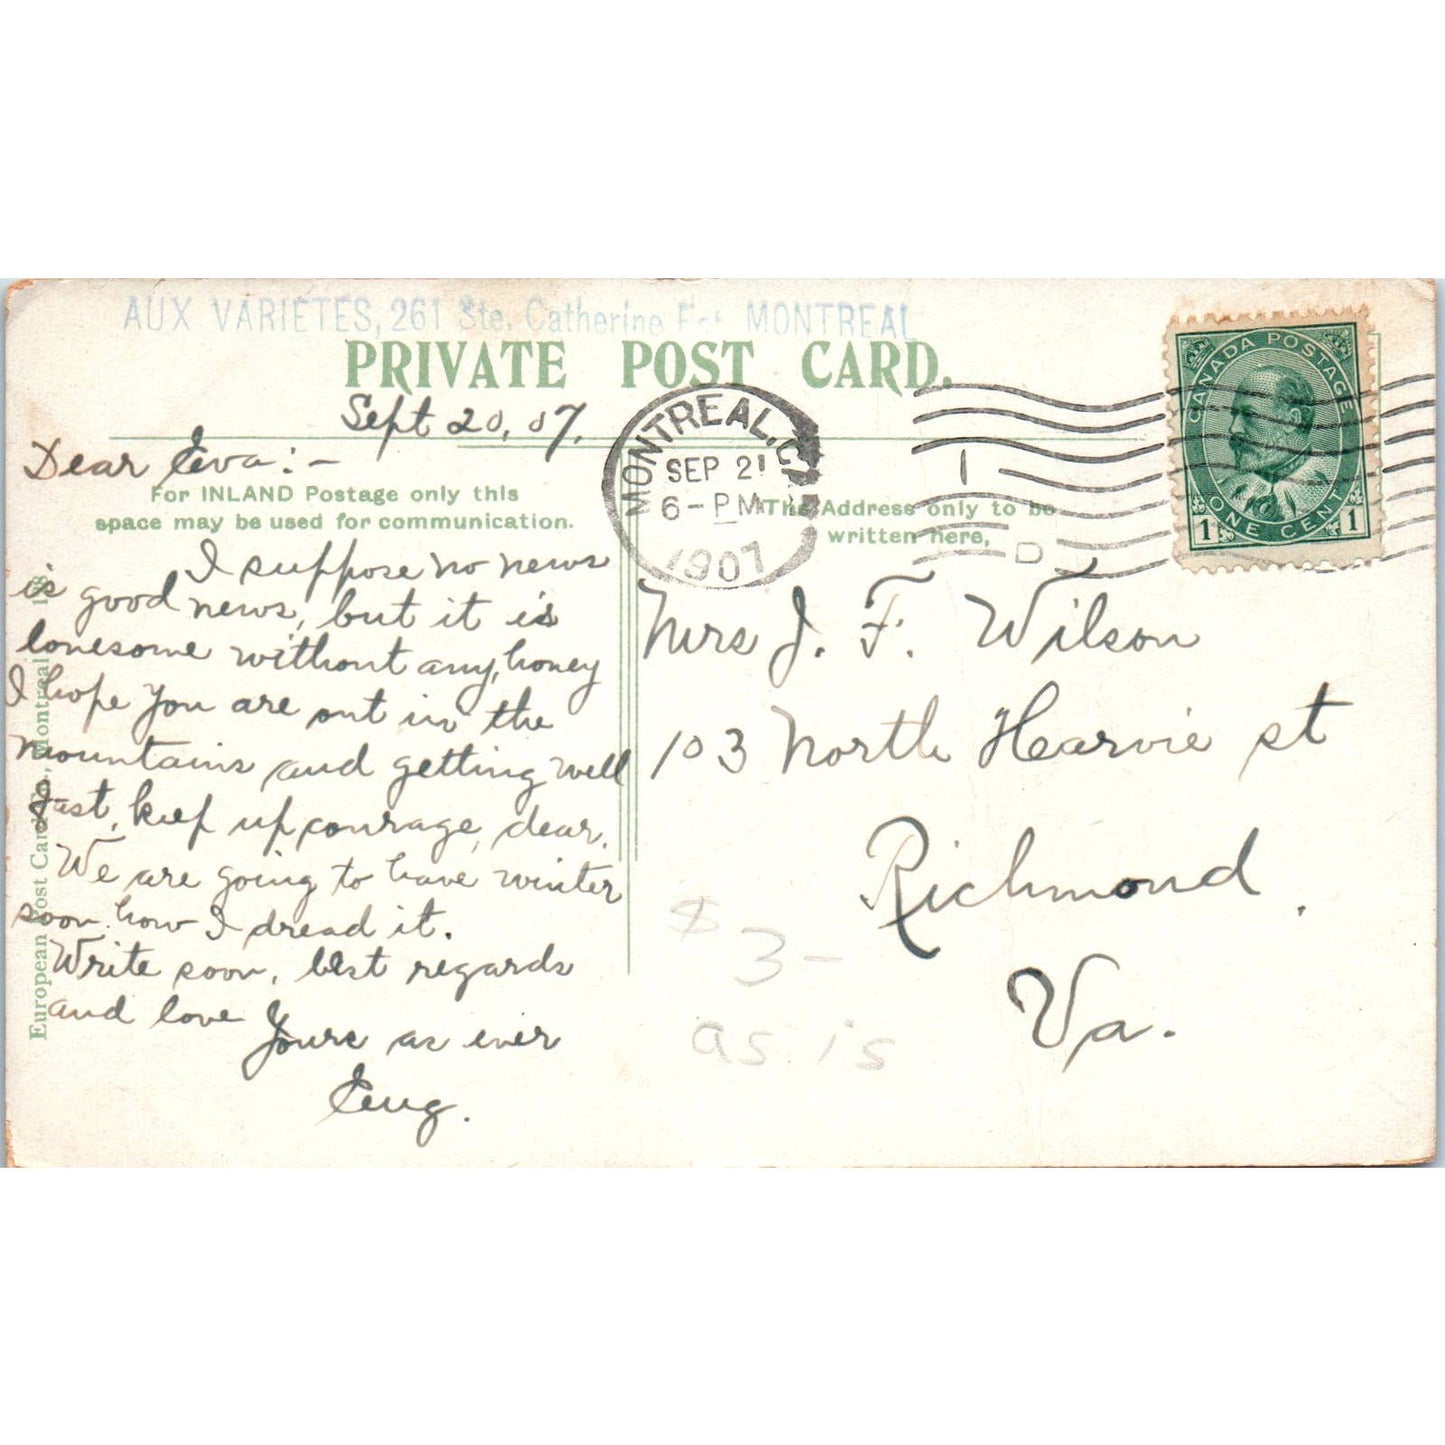 AUX VARIÉTÉS, 261 Ste. Catherine Est MONTREAL
PRIVATE POST CARD.
Sept 20, 07.
Dear Eva:-
For INLAND Postage only this
space may be used for communication.
I suppose no news
is good news, but it is
lonesome without any, honey
I hope you are out in the
mountains and getting well
fast, keep up courage, dear.
We are going to have winter
soon how I dread it.
Write soon, best regards
and love
Yours as ever
Eug.
European Post Card Co., Montreal
MONTREAL, CA
SEP 21
6-PM
1907
1
D
CANADA POSTAGE
ONE CENT
1 1
The Address only to be
written here,
Mrs J. F. Wilson
103 North Harvie st
Richmond.
Va.
$3-
as is